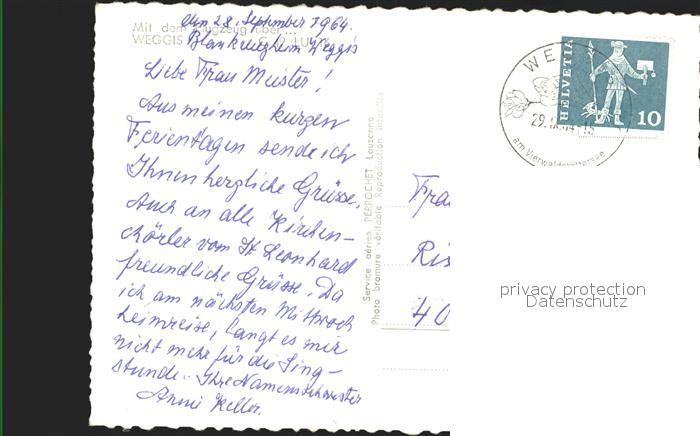 den 28. September 1964.
Mit dem Flugzeug über ...
WEGGIS
Blankeugheim Weggis
Liebe Frau Meister!
Aus meinen kurzen
Ferientagen sende ich
Ihnen herzliche Grüsse.
Auch an alle Kirchen-
chörler vom St. Leonhard
freundliche Grüsse. Da
ich am nächsten Mittwoch
heimreise, langt es mir
nicht mehr für die Sing-
stunde. Ihre Namensschwester
Anni Keller.
Service aérien PERROCHET Lausanne
Photo bromure véritable Reproduction interdite
Fra
Ris
40
WE
29.
am Vierwaldstättersee
HELVETIA
10
privacy protection
Datenschutz